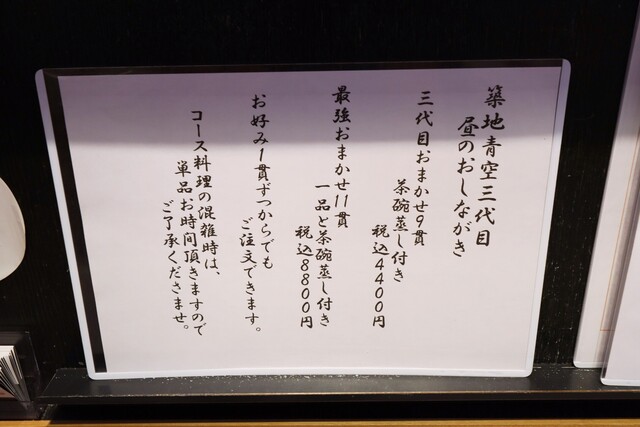 築地青空三代目
昼のおしながき
三代目おまかせ9貫
茶碗蒸し付き
税込4400円
最強おまかせ11貫
一品と茶碗蒸し付き
税込8800円
お好み1貫ずつからでも
ご注文できます。
コース料理の混雑時は、
単品お時間頂きますので
ご了承くださませ。